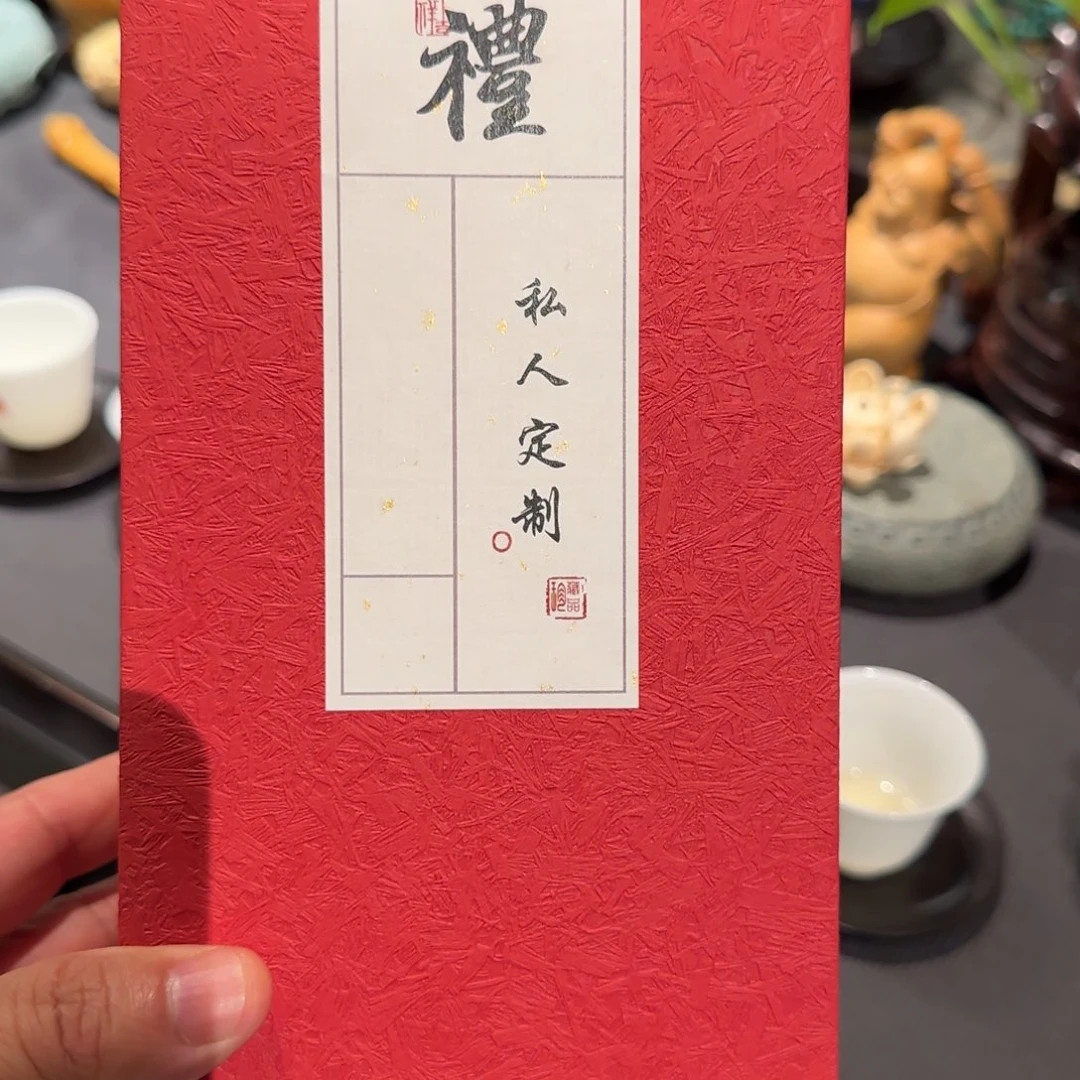 禮
私人定制